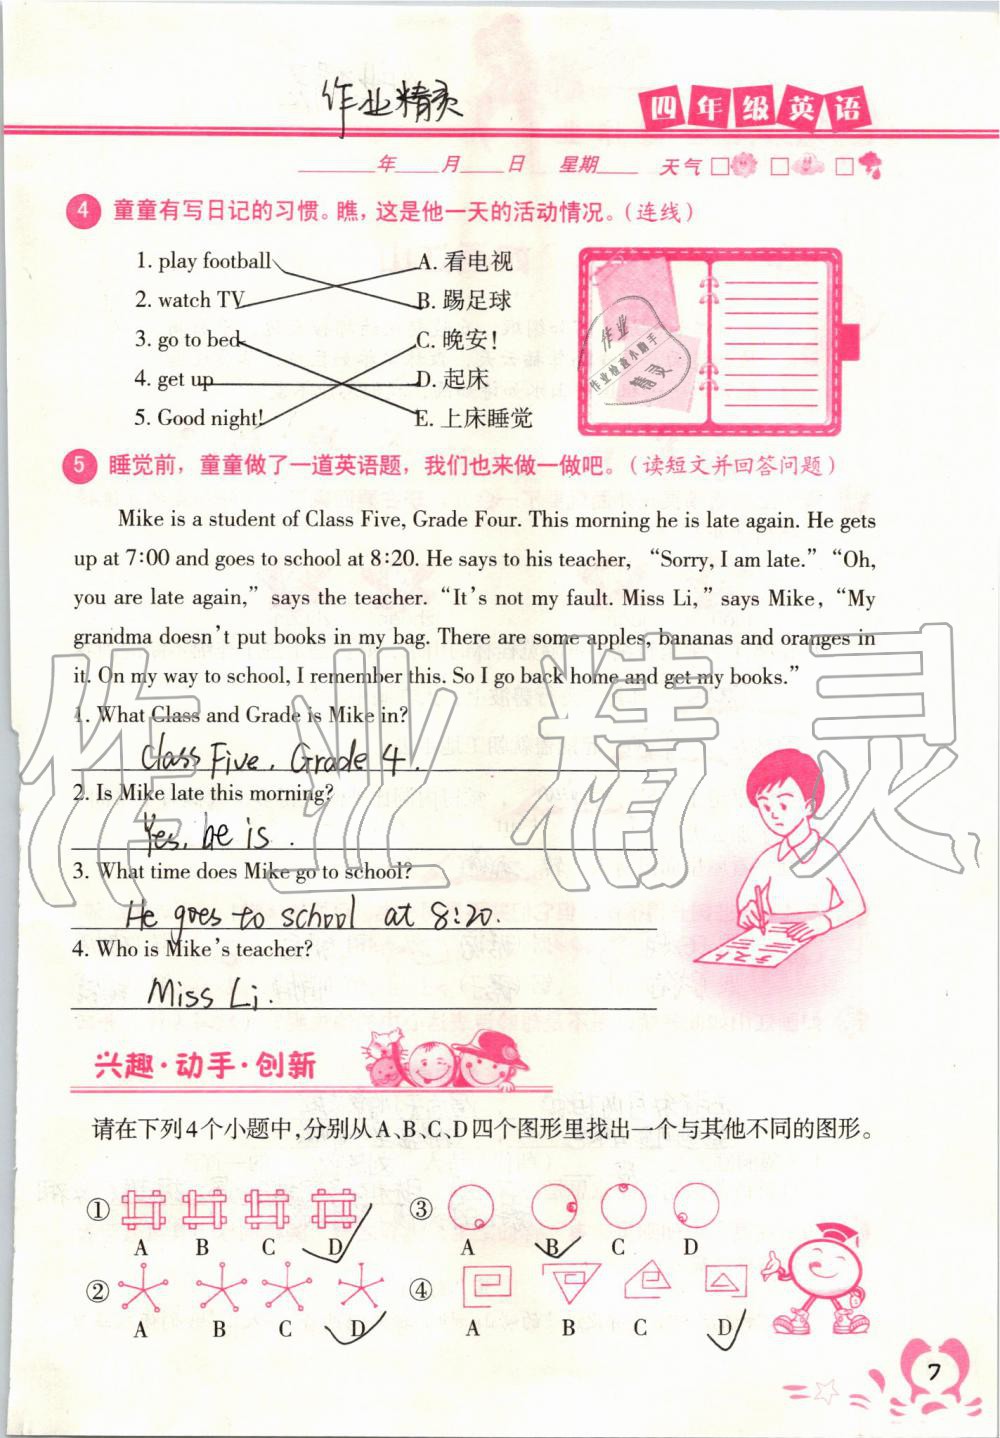 作业精灵
四年级英语
____年____月____日 星期____ 天气
4 童童有写日记的习惯。瞧，这是他一天的活动情况。（连线）
1. play football A. 看电视
2. watch TV B. 踢足球
3. go to bed C. 晚安！
4. get up D. 起床
5. Good night! E. 上床睡觉
作业
作业检查小助手
精灵
5 睡觉前，童童做了一道英语题，我们也来做一做吧。（读短文并回答问题）
Mike is a student of Class Five, Grade Four. This morning he is late again. He gets
up at 7:00 and goes to school at 8:20. He says to his teacher, “Sorry, I am late.” “Oh,
you are late again,” says the teacher. “It’s not my fault. Miss Li,” says Mike, “My
grandma doesn’t put books in my bag. There are some apples, bananas and oranges in
it. On my way to school, I remember this. So I go back home and get my books.”
1. What Class and Grade is Mike in?
Class Five, Grade 4.
2. Is Mike late this morning?
Yes, he is.
3. What time does Mike go to school?
He goes to school at 8:20.
4. Who is Mike’s teacher?
Miss Li.
作业精灵
兴趣·动手·创新
请在下列4个小题中，分别从A、B、C、D四个图形里找出一个与其他不同的图形。
① ③
A B C D A B C D
② ④
A B C D A B C D
7